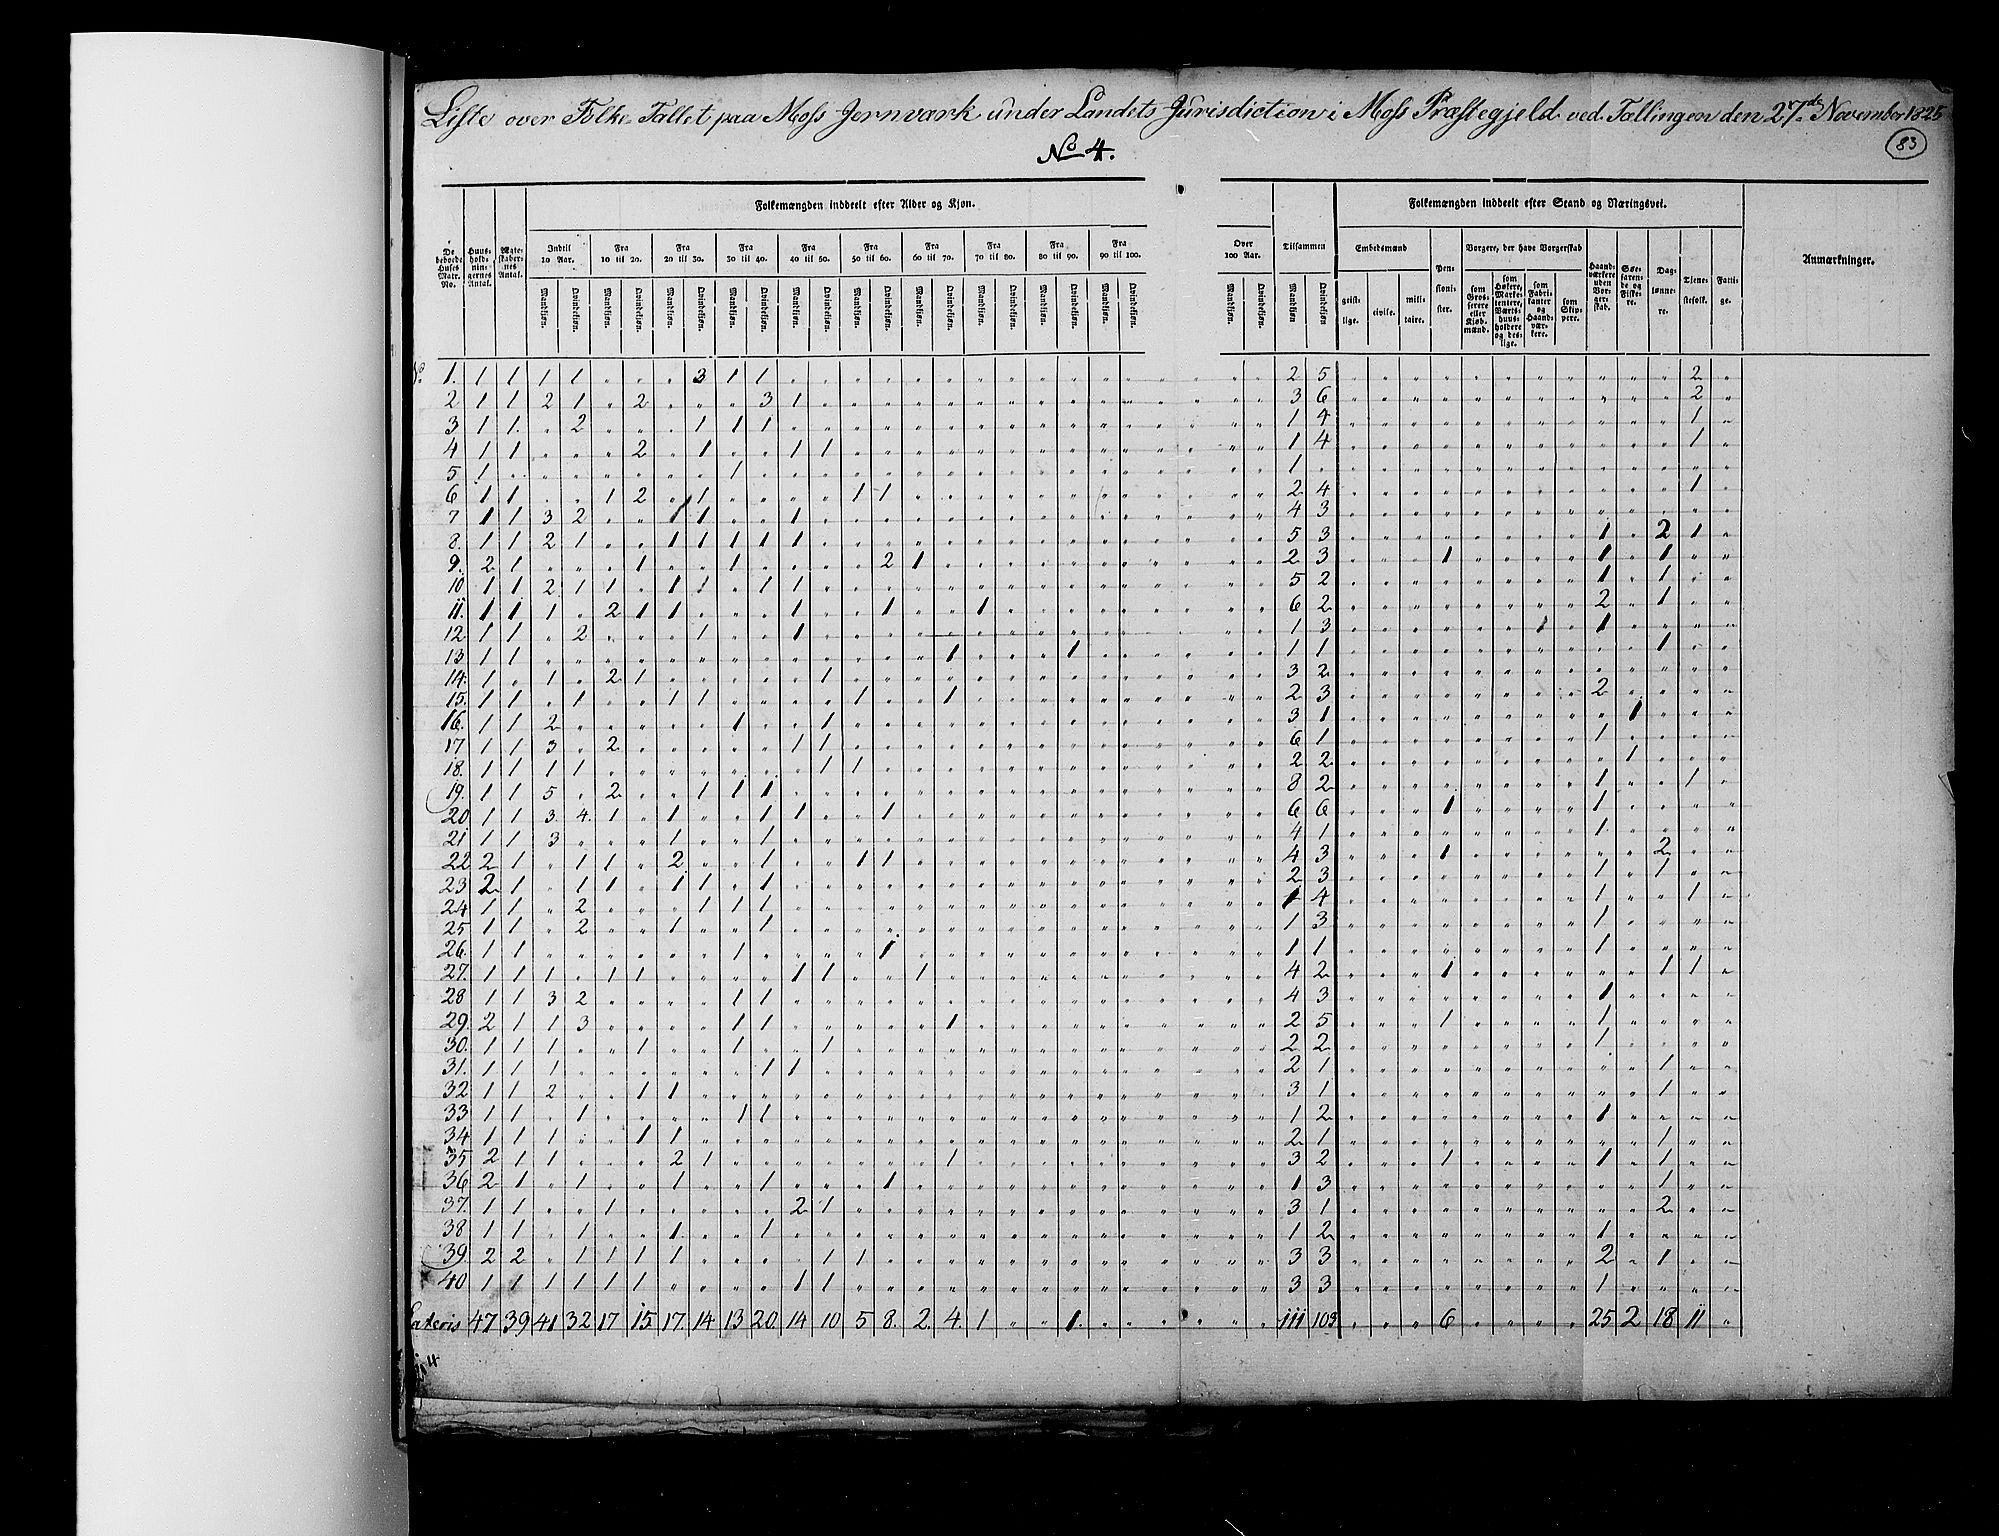 Liste over Folke-Tallet paa Moss Jernværk under Landets Jurisdiction i Moss Præstegjeld ved Tællingen den 27de November 1825
83
No 4.
Folkemængden inddeelt efter Alder og Kjøn.
Folkemængden inddeelt efter Stand og Næringsvei.
De beboede Huses Matr. No.
Huusholdningernes Antal.
Ægteskabernes Antal.
Indtil 10 Aar.
Fra 10 til 20.
Fra 20 til 30.
Fra 30 til 40.
Fra 40 til 50.
Fra 50 til 60.
Fra 60 til 70.
Fra 70 til 80.
Fra 80 til 90.
Fra 90 til 100.
Over 100 Aar.
Tilsammen
Mandkjøn. Qvindekjøn.
Embedsmænd
geistlige. civile. militaire.
Pensionister.
Borgere, der have Borgerskab
som Grosserere eller Kjøbmænd.
som Høkere, Marketentere, Værtshuusholdere og deslige.
som Fabrikanter og Haandværkere.
som Skippere.
Haandværkere uden Borgerskab.
Søefarende og Fiskere.
Daglønnere.
Tjenestefolk.
Fattige.
Anmærkninger.
No. 1. 1 1 1 1 3 1 1 2 5 2
2 1 1 2 1 2 3 1 3 6 2
3 1 1. 2 1 1 1 1 4 1
4 1 1 2 1 1 1 1 4 1
5 1 1 1
6 1 1 1 2 1 1 1 2 4 1
7 1 1 3 2 1 1 1 4 3
8. 1 1 2 1 1 1 1 1 1 5 3 1 2 1
9. 2 1 1 1 2 1 2 3 1 1 1
10 1 1 2 1 1 1 1 1 1 5 2 1 1
11. 1 1 1 2 1 1 1 1 1 6 2 2 1
12 1 1 2 1 1 1 3 1 1
13 1 1 1 1 1 1 1
14. 1 1 2 1 1 3 2
15. 1 1 1 1 1 1 1 2 3 2
16. 1 1 2 1 1 3 1 1
17 1 1 3 2 1 1 6 1 1
18. 1 1 1 1 1 1 2 2 1
19. 1 1 5 2 1 1 1 8 2 1 1
20 1 1 3. 4. 1 1 1 1 1 6 6 1 1
21 1 1 3 1 1 4 1 1
22 2 1 1 1 2 1 1 1 4 3 1 2
23 2 1 1 1 1 1 1 2 3 1 1
24 1 1 2 1 1 1 1 4 1 1
25 1 1 2 1 1 1 3 1
26. 1 1 1 1 1 1 1
27. 1 1 1 1 1 1 1 1 4 2 1 1 1
28 1 1 3 2 1 1 4 3 1
29. 2 1 1 3 1 1 1 2 5 1 1
30. 1 1 1 1 1 1 2 2 1
31. 1 1 1 1 1 2 1 1
32 1 1 2 1 1 3 1 1
33 1 1 1 1 1 1 2 1
34 1 1 1 1 1 2 1 1
35 2 1 1 2 1 1 3 2 1 1 1
36 2 1 1 1 1 1 1 3 1
37. 1 1 1 2 1 3 1 2
38 1 1 1 1 1 1 2 1
39. 2 2 1 1 1 1 1 1 3 3 2 1
40 1 1 1 1 1 1 1 1 3 3 1
Lateris 47 39 41 32 17 15 17. 14 13 20 14 10 5 8. 2. 4. 1 1. 111 109 6 25 2 18 11